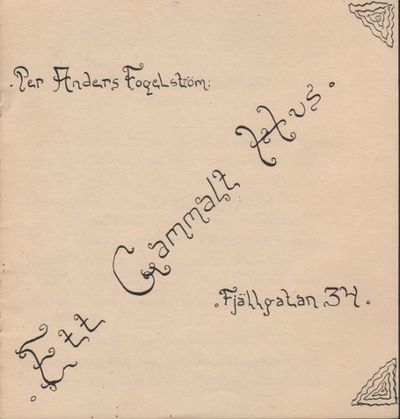 .Per Anders Fogelström:
.Ett Gammalt Hus.
.Fjällgatan 34.